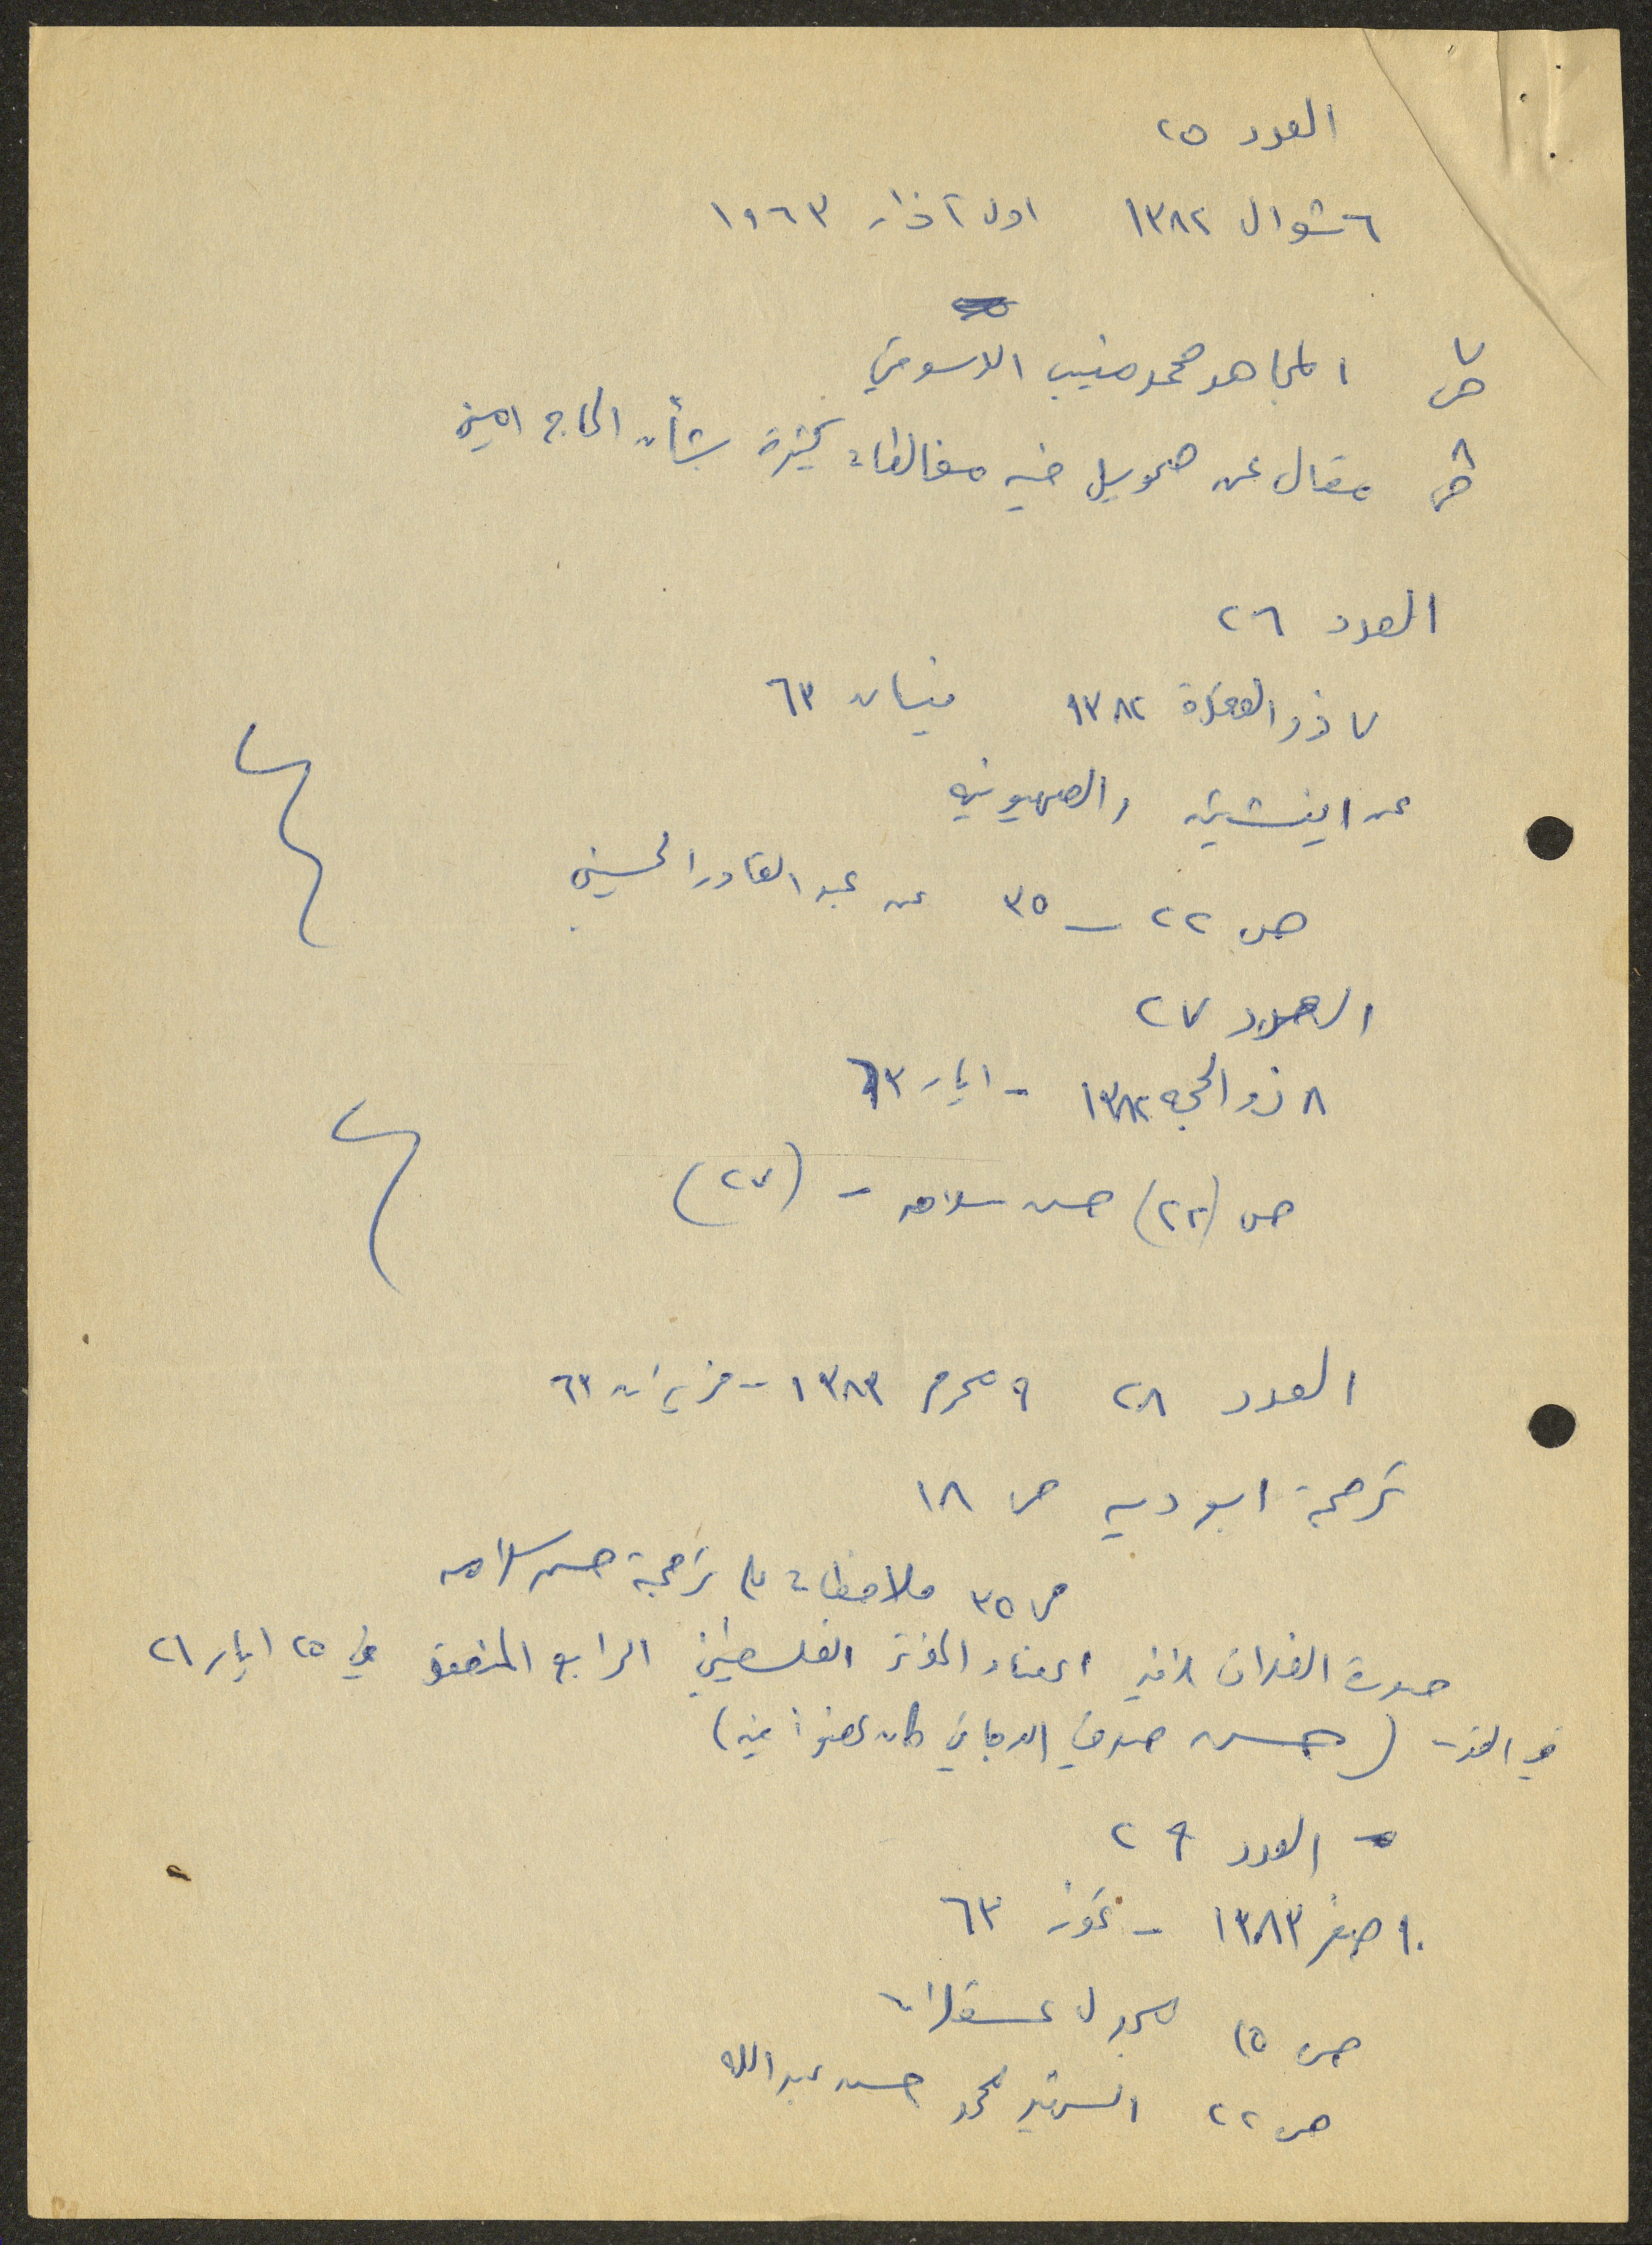 العدد ٢٥
٦ شوال ١٣٨٢ اول آذار ١٩٦٣
ص ٧ المجاهد محمد منيب
ص ٨ مقال عن صموئيل فيه مغالطات كثيرة بشأن الحاج امين
العدد ٢٦
٧ ذو القعدة ١٣٨٢ نيسان ٦٣
عن اينشتين والصهيونيه
ص ٢٢ – ٣٥ عن عبد القادر الحسيني
العدد ٢٧
٨ ذو الحجه ١٣٨٢ - ايار ٦٣
ص (٢٢) حسن سلامه - (٢٧)
العدد ٢٨ ٩ محرم ١٣٨٣ - حزيران ٦٣
ترجمة ابو ديه ص ١٨
ص ٣٥ ملاحظات على ترجمة حسن سلامه
صورة اعضاء المؤتمر الفلسطيني الرابع المنعقد في ٢٥ ايار ٢١
في القدس (حسن صدقي الدجاني كان عضواً فيه)
- العدد ٢٩
١٠ صفر ١٣٨٣ - تموز ٦٣
ص ١٥ مجدل عسقلان
ص ٢٢ الشهيد محمد حسن عبد الله